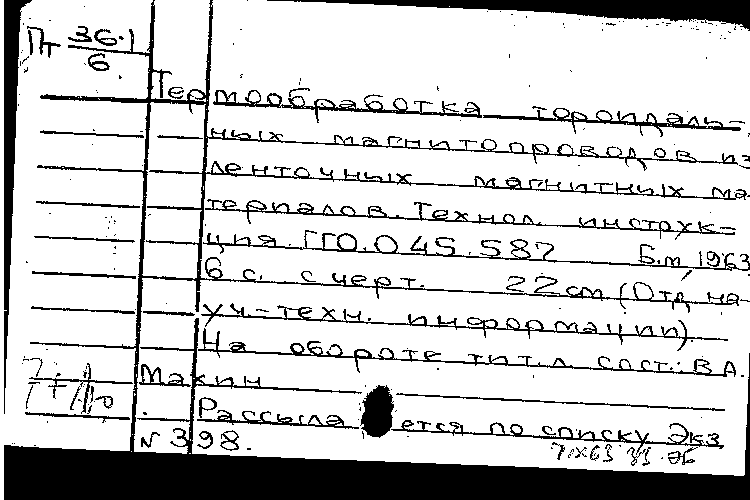 Пт 36.1
6.
Термообработка тороидаль-
ных магнитопроводов из
ленточных магнитных ма
териалов. Технол. инструк-
ция. ГГ0.045.587 Б.м, 1963
6 с. с черт. 22 cm (Отд. на
уч-техн. информации).
На обороте тит.л. сост.: В.А.
Макин
Рассыла ется по списку Экз
N 398.